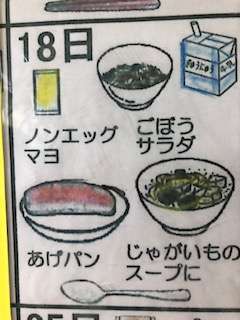 18日
ぎゅうにゅう
ノンエッグ
マヨ
ごぼう
サラダ
あげパン
じゃがいもの
スープに